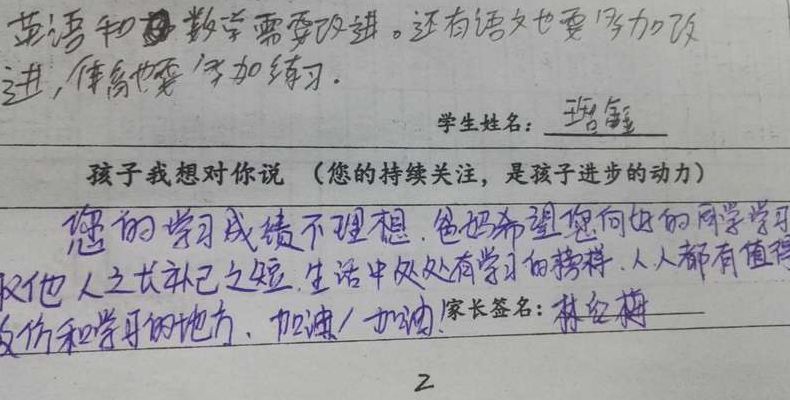 英语和数学需要改进。还有语文也要多加改
进，体育也要多加练习.
学生姓名：
孩子我想对你说 （您的持续关注，是孩子进步的动力）
您的学习成绩不理想.爸妈希望您向好的同学学习
取他人之长补己之短.生活中处处有学习的榜样.人人都有值得
仿和学习的地方.加油！加油！家长签名：林红梅
2